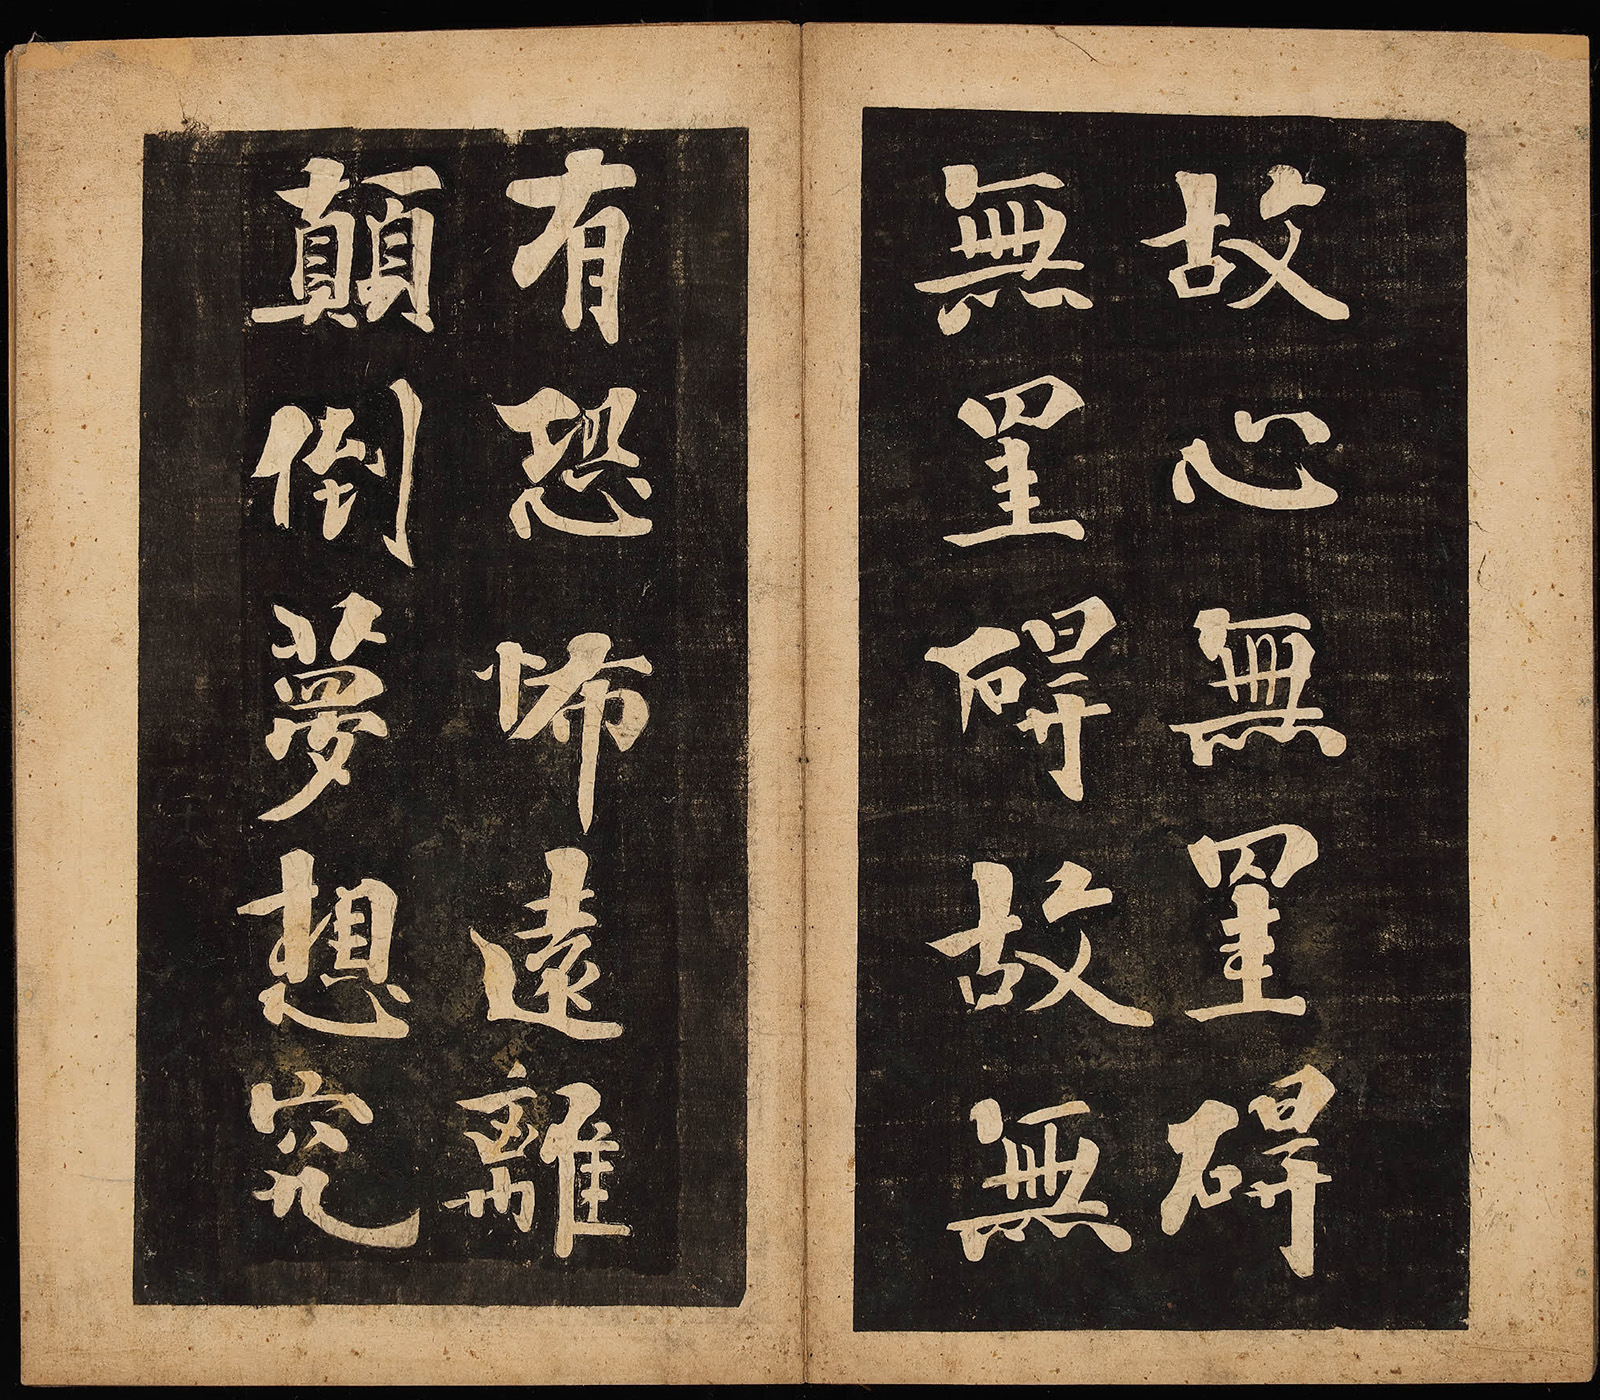 故心無罣碍
無罣碍故無
有恐怖遠離
顛倒夢想究